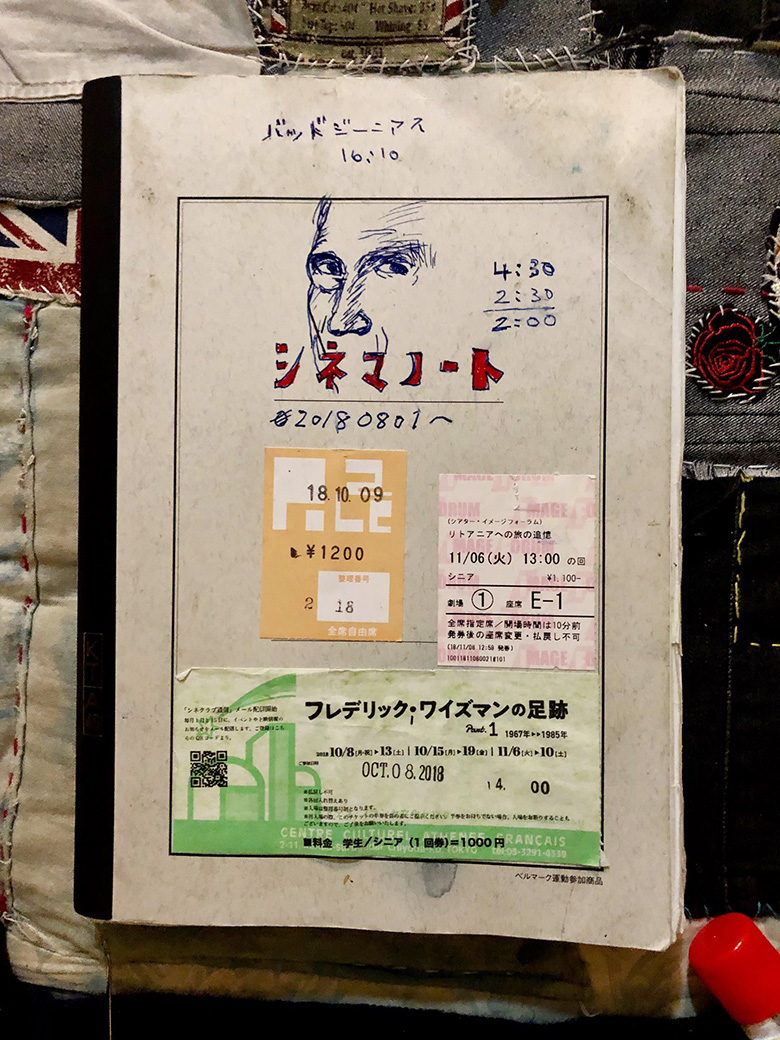 Hot Shave: 25¢
バッドジーニアス
16:10
4:30
2:30
2:00
シネマノート
20180801〜
18.10.09
¥1200
整理番号
2 18
全席自由席
(シアター・イメージフォーラム)
リトアニアへの旅の追憶
11/06(火) 13:00 の回
シニア ¥1,100-
劇場 ① 座席 E-1
全席指定席/開場時間は10分前
発券後の座席変更・払戻し不可
フレデリック・ワイズマンの足跡
Part.1 1967年▸▸1985年
2018 10/8(月・祝)▸13(土) | 10/15(月)▸19(金) | 11/6(火)▸10(土)
OCT.08.2018
14. 00
※払戻し不可
※各回入れ替えあり
※入場は整理番号順となります。
CENTRE CULTUREL ATHENEE FRANCAIS
TOKYO Tel:03-3291-4339
■料金 学生/シニア(1回券)=1000円
ベルマーク運動参加商品